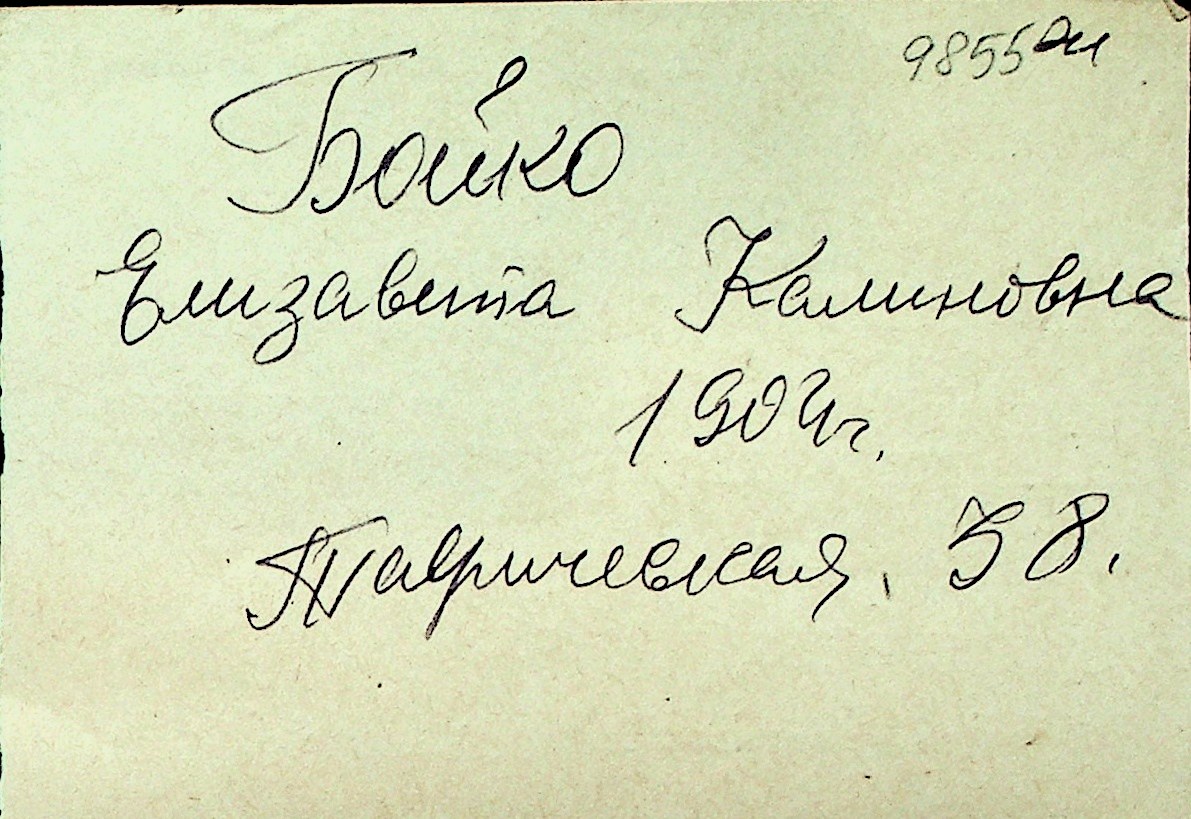 9855
Бойко
Елизавета Калиновна
1904г.
Таврическая,